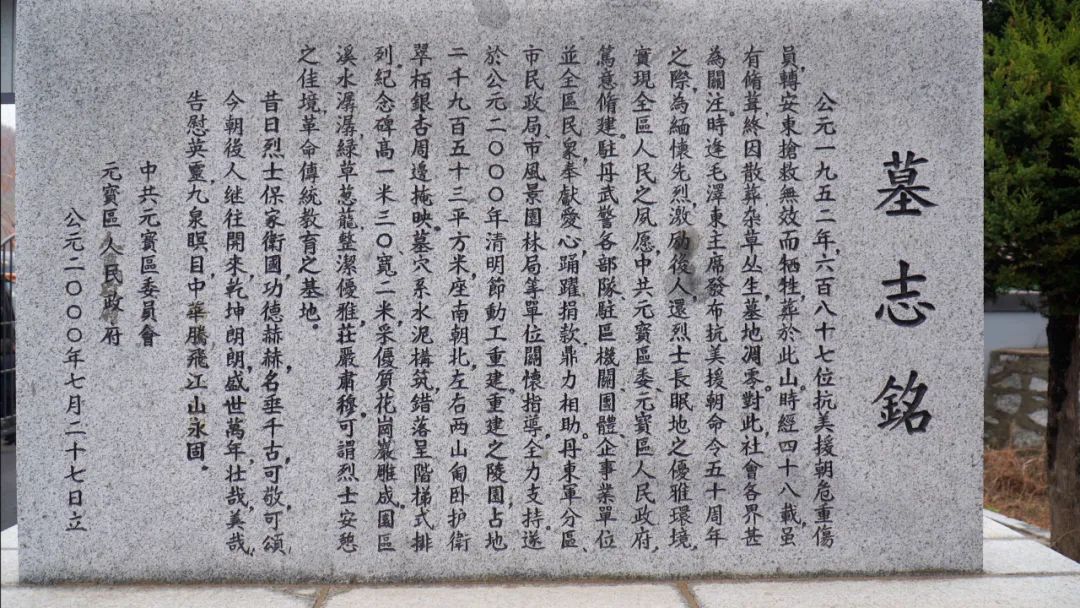 墓志銘
公元一九五二年，六百八十七位抗美援朝危重傷
員，轉安東搶救無效而牺牲，葬於此山。時經四十八載，虽
有脩葺，終因散葬杂草丛生，墓地凋零。對此，社會各界甚
為關注。時逢毛澤東主席發布抗美援朝命令五十周年
之際，為緬懷先烈，激励後人，還烈士長眠地之優雅環境，
實現全區人民之夙愿，中共元寶區委、元寶區人民政府，
篤意脩建。駐丹武警各部隊、駐區機關、團體、企事業單位
並全區民衆奉獻愛心，踊躍捐款，鼎力相助。丹東軍分區、
市民政局、市風景園林局等單位關懷指導，全力支持。遂
於公元二〇〇〇年清明節動工重建。重建之陵園，占地
二千九百五十三平方米，座南朝北，左右两山匍卧护衛，
翠栢銀杏周邊掩映。墓穴系水泥構筑，錯落呈階梯式排
列，紀念碑高一米三〇，寬二米，采優質花崗巖雕成。園區
溪水潺潺，綠草葱蘢，整潔優雅，莊嚴肅穆。可謂烈士安憩
之佳境，革命傳統教育之基地。
昔日烈士保家衛國，功德赫赫，名垂千古，可敬可頌，
今朝後人继往開來，乾坤朗朗，盛世萬年，壮哉美哉，
告慰英靈，九泉瞑目，中華騰飛，江山永固。
中共元寳區委員會
元寳區人民政府
公元二〇〇〇年七月二十七日立